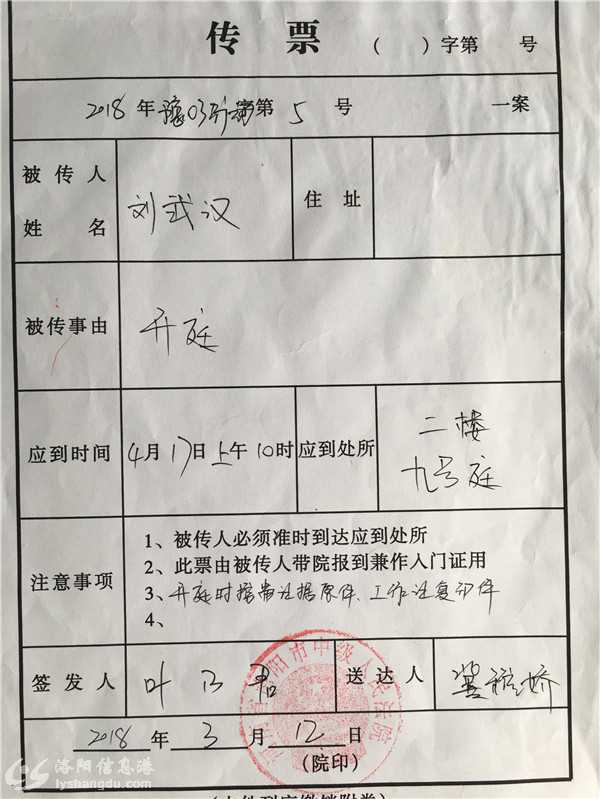 传 票 （ ）字第 号
2018 年 豫03行初第 5 号 一案
被 传 人
姓 名
刘武汉
住 址
被传事由
开庭
应到时间
4月17日上午10时
应到处所
二楼
九号庭
注意事项
1、被传人必须准时到达应到处所
2、此票由被传人带院报到兼作入门证用
3、开庭时携带证据原件、工作证复印件
4、
签 发 人
叶
送 达 人
2018 年 3 月 12 日
（院印）
阳市中级人民法院
洛阳信息港
lyshangdu.com